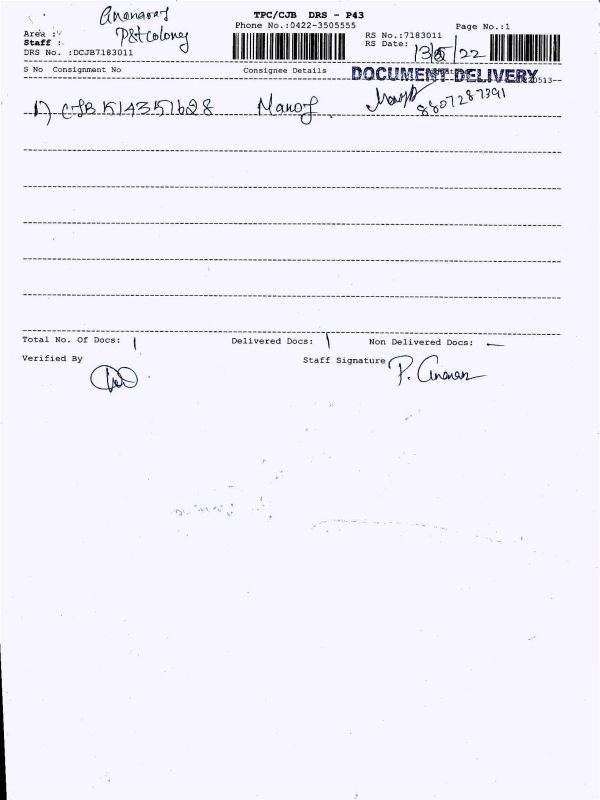 TPC/CJB DRS - P43
Phone No.:0422-3505555
Page No.:1
Area :
P&t colony
RS No.:7183011
Staff :
RS Date: 13/5/22
DRS No. :DCJB7183011
S No Consignment No Consignee Details
DOCUMENT DELIVERY
1) CJB 514351628 Manoj 8807287391
Total No. Of Docs: 1 Delivered Docs: 1 Non Delivered Docs: —
Verified By Staff Signature